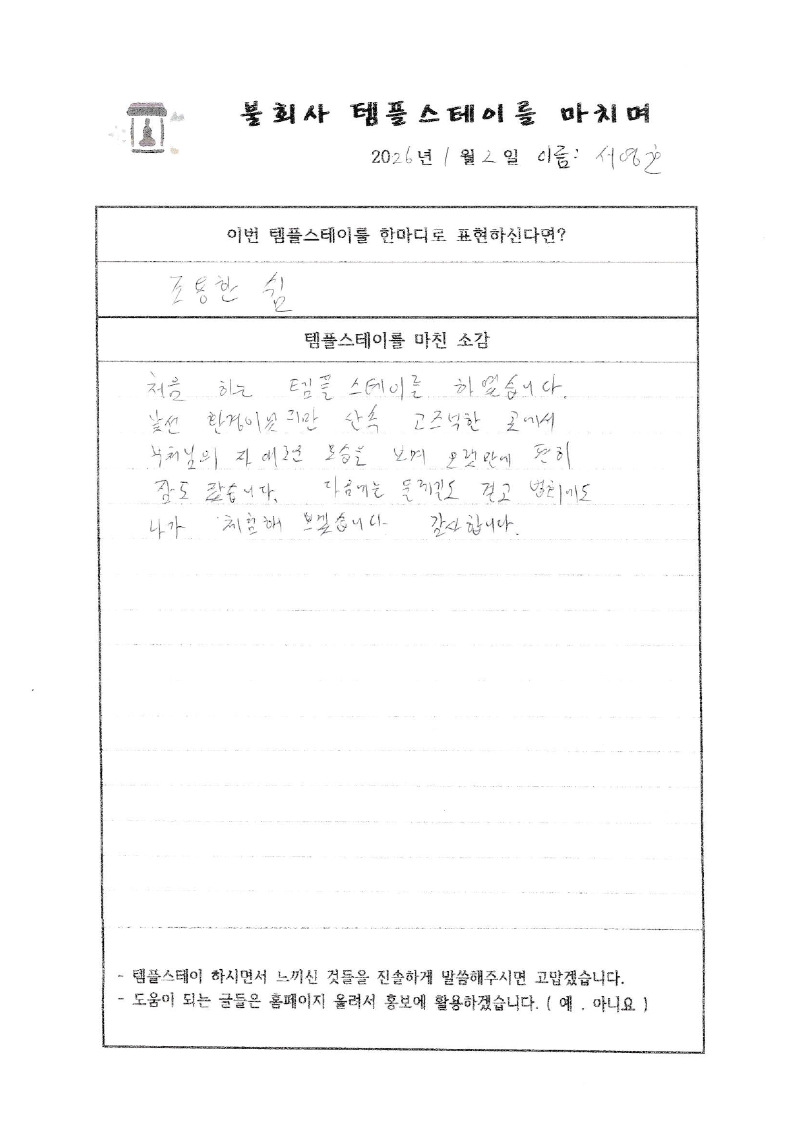 불회사 템플스테이를 마치며
2026년 1월 2일 이름: 서영
이번 템플스테이를 한마디로 표현하신다면?
조용한 쉼
템플스테이를 마친 소감
처음 하는 템플스테이를 하였습니다.
낯선 환경이었지만 산속 고즈넉한 곳에서
부처님의 자애로운 모습을 보며 오랫만에 편히
잠도 잤습니다. 다음에는 둘레길도 걷고
나가 체험해 보겠습니다. 감사합니다.
- 템플스테이 하시면서 느끼신 것들을 진솔하게 말씀해주시면 고맙겠습니다.
- 도움이 되는 글들은 홈페이지 올려서 홍보에 활용하겠습니다. ( 예 . 아니요 )